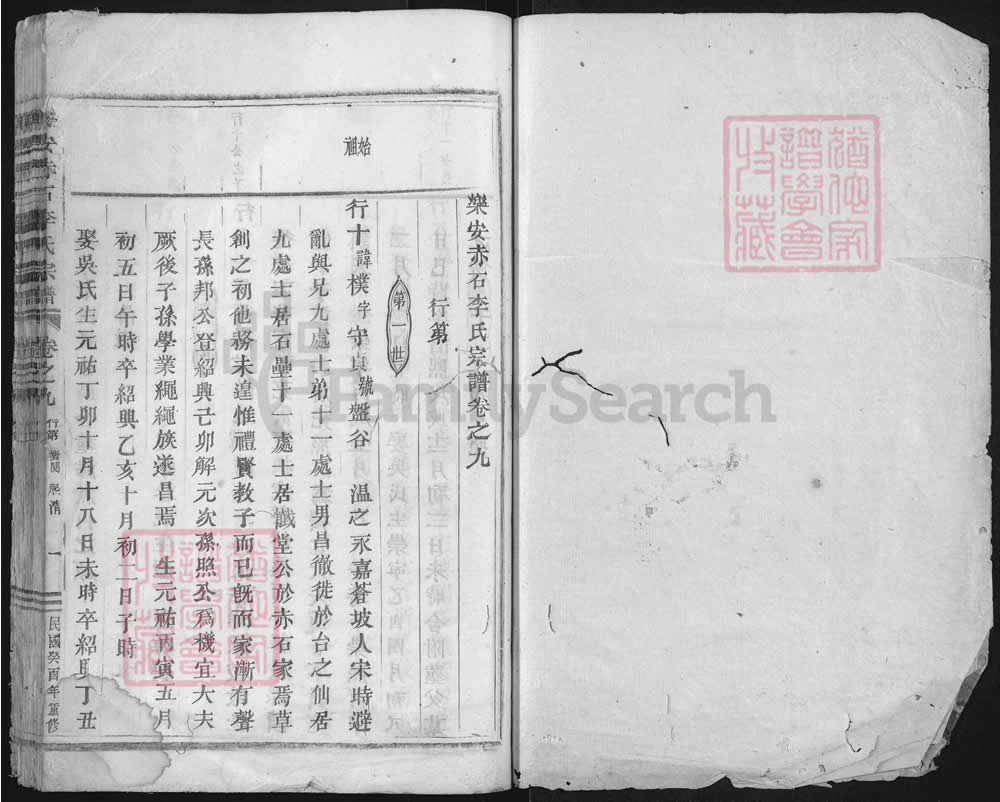 樂安赤石李氏宗譜卷之九
行第
第一世
始祖
行十諱樸字守貞號盤谷溫之永嘉蒼坡人宋時避
亂與兄九處士弟十一處士男昌徹徙於台之仙居
九處士居石壘十一處士居巘堂公於赤石家焉草
創之初他務未遑惟禮賢教子而已旣而家漸有聲
長孫邦公登紹興己卯解元次孫照公爲機宜大夫
厥後子孫學業繩繩族遂昌焉 生元祐丙寅五月
初五日午時卒紹興乙亥十月初二日子時
娶吳氏生元祐丁卯十月十八日未時卒紹興丁丑
樂安赤石李氏宗譜 卷之九 行第 一 民國癸酉年重修
譜學會
FamilySearch